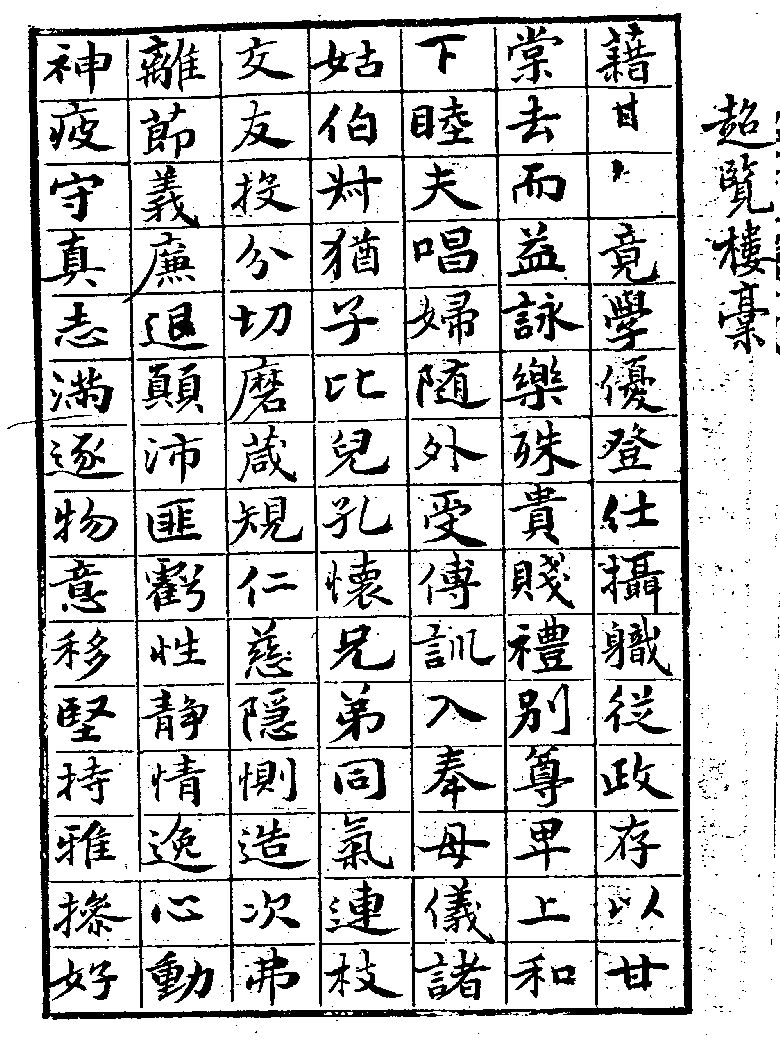 超覽樓稾
藉竟學優登仕攝軄從政存以甘
棠去而益詠樂殊貴賤禮别尊卑上和
下睦夫唱婦随外受傅訓入奉母儀諸
姑伯叔猶子比兒孔懐兄弟同氣連枝
交友投分切磨葴規仁慈隠惻造次弗
離節義廉退顛沛匪虧性静情逸心動
神疲守真志満逐物意移堅持雅操好